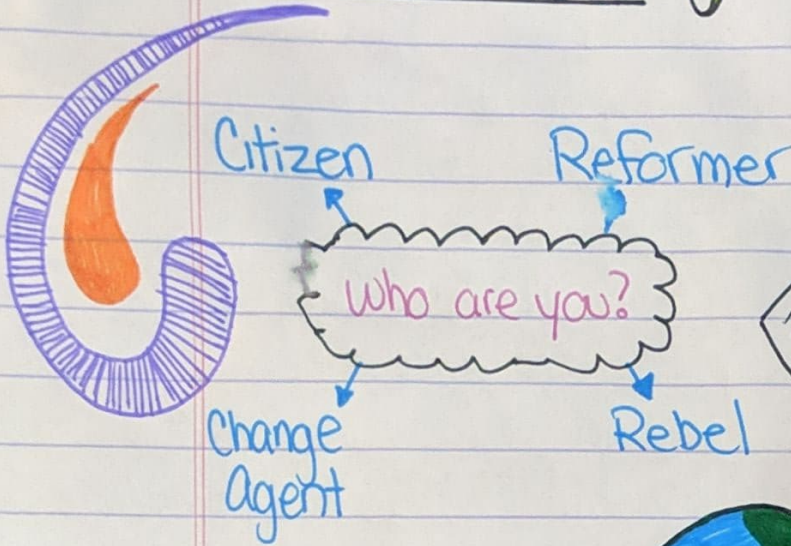 Citizen
Reformer
Who are you?
Change
agent
Rebel